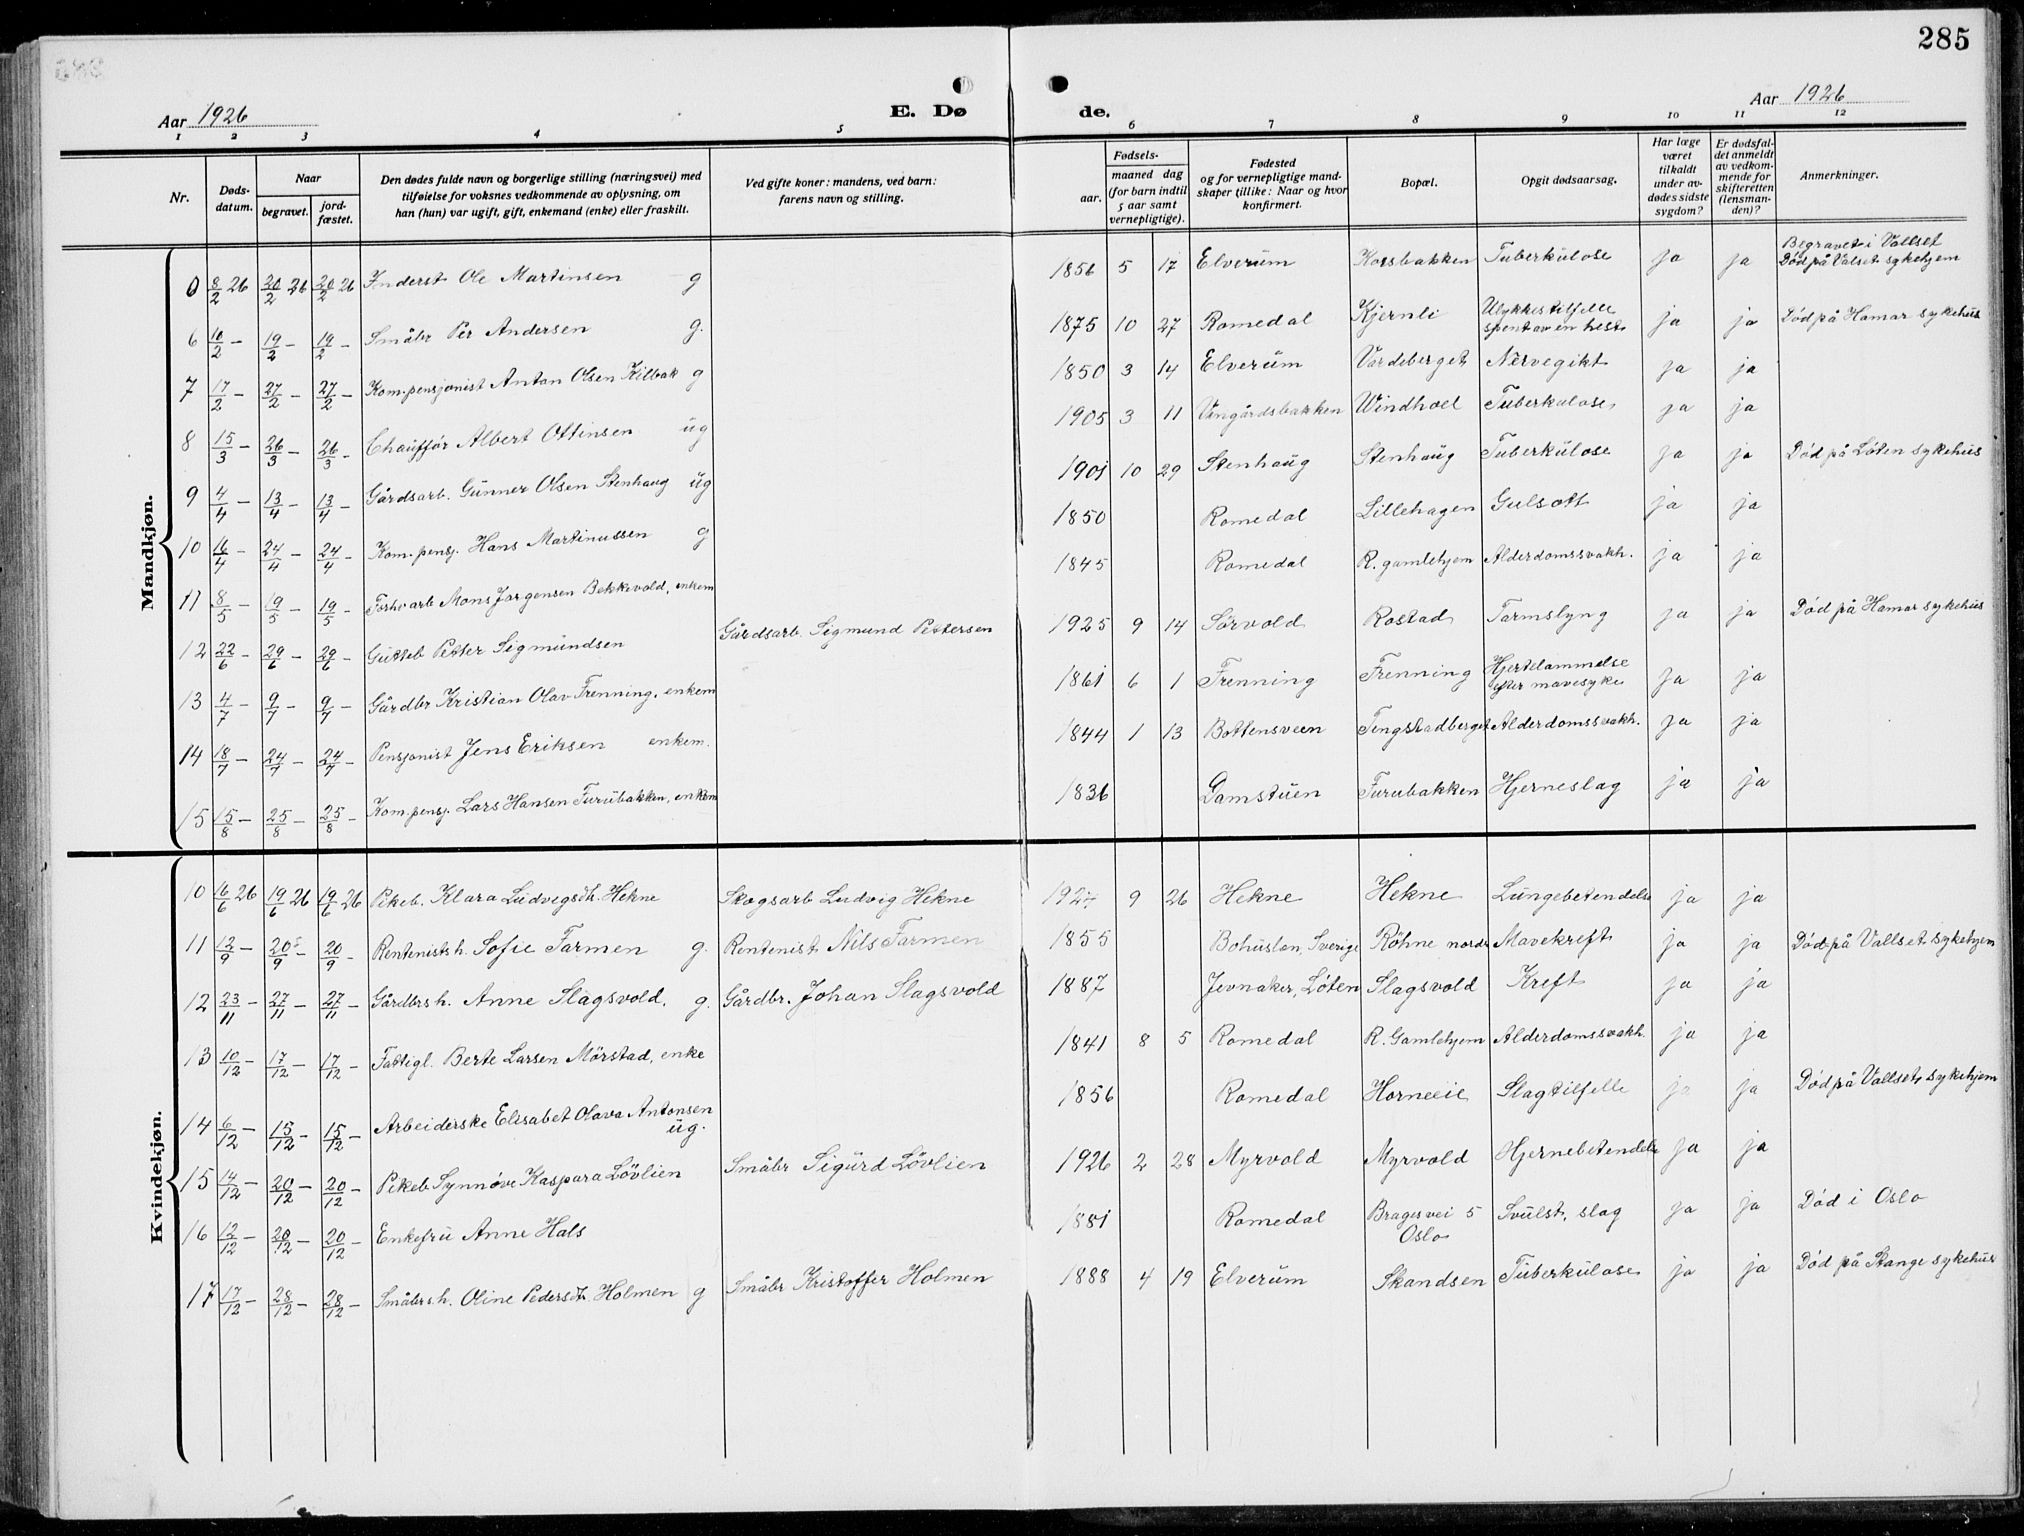 285
Aar 1926
E. Dø de.
Aar 1926
1 2 3 4 5 6 7 8 9 10 11 12
Nr.
Døds-
datum.
Naar
begravet.
jord-
fæstet.
Den dødes fulde navn og borgerlige stilling (næringsvei) med
tilføielse for voksnes vedkommende av oplysning, om
han (hun) var ugift, gift, enkemand (enke) eller fraskilt.
Ved gifte koner: mandens, ved barn:
farens navn og stilling.
Fødsels-
aar.
maaned dag
(for barn indtil
5 aar samt
vernepligtige).
Fødested
og for vernepligtige mand-
skaper tillike: Naar og hvor
konfirmert.
Bopæl.
Opgit dødsaarsag.
Har læge
været
tilkaldt
under av-
dødes sidste
sygdom?
Er dødsfal-
det anmeldt
av vedkom-
mende for
skifteretten
(lensman-
den)?
Anmerkninger.
Mandkjøn.
0 8/2 26 20/2 26 20/2 26 Inderst Ole Martinsen g 1856 5 17 Elverum Korsbakken Tuberkulose ja ja Begravet i Vallset Død på Valset sykehjem
6 10/2 – 19/2 – 19/2 – Småbr Per Andersen g. 1875 10 27 Romedal Kjernli Ulykkestilfelle spent av en hest ja ja Død på Hamar sykehus
7 17/2 – 27/2 – 27/2 – Kom.pensjonist Anton Olsen Kilbak g 1850 3 14 Elverum Vardeberget Nervegikt ja ja
8 15/3 – 26/3 – 26/3 – Chauffør Albert Ottinsen ug 1905 3 11 Vingårdsbakken Windhoel Tuberkulose ja ja
9 4/4 – 13/4 – 13/4 – Gårdsarb. Gunner Olsen Stenhaug ug 1901 10 29 Stenhaug Stenhaug Tuberkulose ja ja Død på Løten sykehus
10 16/4 – 24/4 – 24/4 – Kom.pensj. Hans Martinussen g 1850 Romedal Lillehagen Gulsott ja ja
11 8/5 – 19/5 – 19/5 – Forhv arb Mons Jørgensen Bekkevold, enkem 1845 Romedal R. gamlehjem Alderdomssvakh. ja ja
12 22/6 – 29/6 – 29/6 – Gutteb Petter Sigmundsen Gårdsarb. Sigmund Pettersen 1925 9 14 Sørvold Rostad Tarmslyng ja ja Død på Hamar sykehus
13 4/7 – 9/7 – 9/7 – Gårdbr Kristian Olav Frenning, enkem 1861 6 1 Frenning Frenning Hjertelammelse efter mavesyke ja ja
14 18/7 – 24/7 – 24/7 – Pensjonist Jens Eriksen enkem. 1844 1 13 Bottensveen Tengstadberget Alderdomssvakh. ja ja
15 15/8 – 25/8 – 25/8 – Kom.pensj. Lars Hansen Furubakken, enkem 1836 Damstuen Furubakken Hjerneslag ja ja
Kvindekjøn.
10 16/6 26 19/6 26 19/6 26 Pikeb. Klara Ludvigsdt. Hekne Skogsarb Ludvig Hekne 9 26 Hekne Hekne Lungebetendelse ja ja
11 12/9 – 20/9 – 20/9 – Rentenists h. Sofie Farmen g. Rentenist Nils Farmen 1855 Bohuslen, Sverige Røhne nordr Mavekreft ja ja Død på Vallset sykehjem
12 23/11 – 27/11 – 27/11 – Gårdbrs h. Anne Slagsvold. g. Gårdbr. Johan Slagsvold 1887 Jevnaker, Løten Slagsvold Kreft ja ja
13 10/12 – 17/12 – 17/12 – Fattigl. Berte Larsen Mørstad, enke 1841 8 5 Romedal R. Gamlehjem Alderdomssvakh. ja ja
14 6/12 – 15/12 – 15/12 – Arbeiderske Elisabet Olava Antonsen ug. 1856 Romedal Horneeie Slagtilfelle ja ja Død på Vallset sykehjem
15 14/12 – 20/12 – 20/12 – Pikeb Synnøve Kaspara Løvlien Småbr Sigurd Løvlien 1926 2 28 Myrvold Myrvold Hjernebetendelse ja ja
16 12/12 – 20/12 – 20/12 – Enkefru Anne Hals 1881 Romedal Bragesvei 5 Oslo Svulst, slag ja ja Død i Oslo
17 17/12 – 28/12 – 28/12 – Småbrs h. Oline Pedersdt. Holmen g Småbr Kristoffer Holmen 1888 4 19 Elverum Skandsen Tuberkulose ja ja Død på Stange sykehus